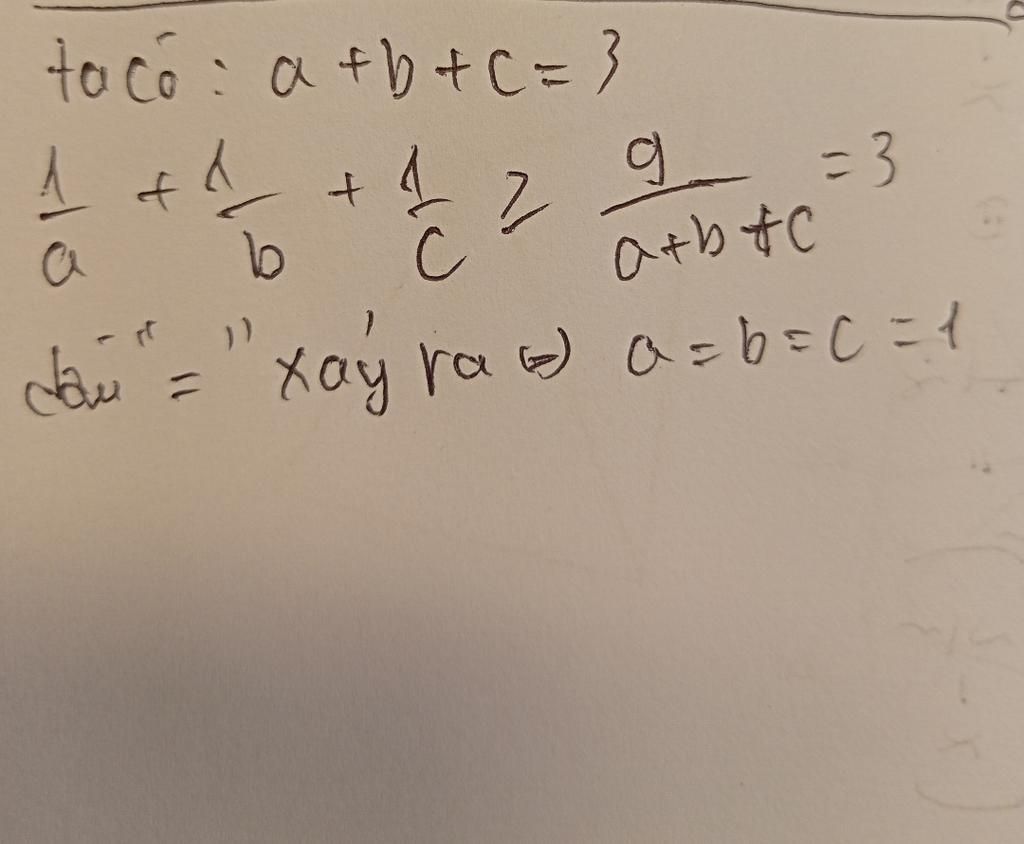 ta có : a + b + c = 3
1/a + 1/b + 1/c ≥ 9/(a+b+c) = 3
dấu " = " xảy ra ⇔ a = b = c = 1